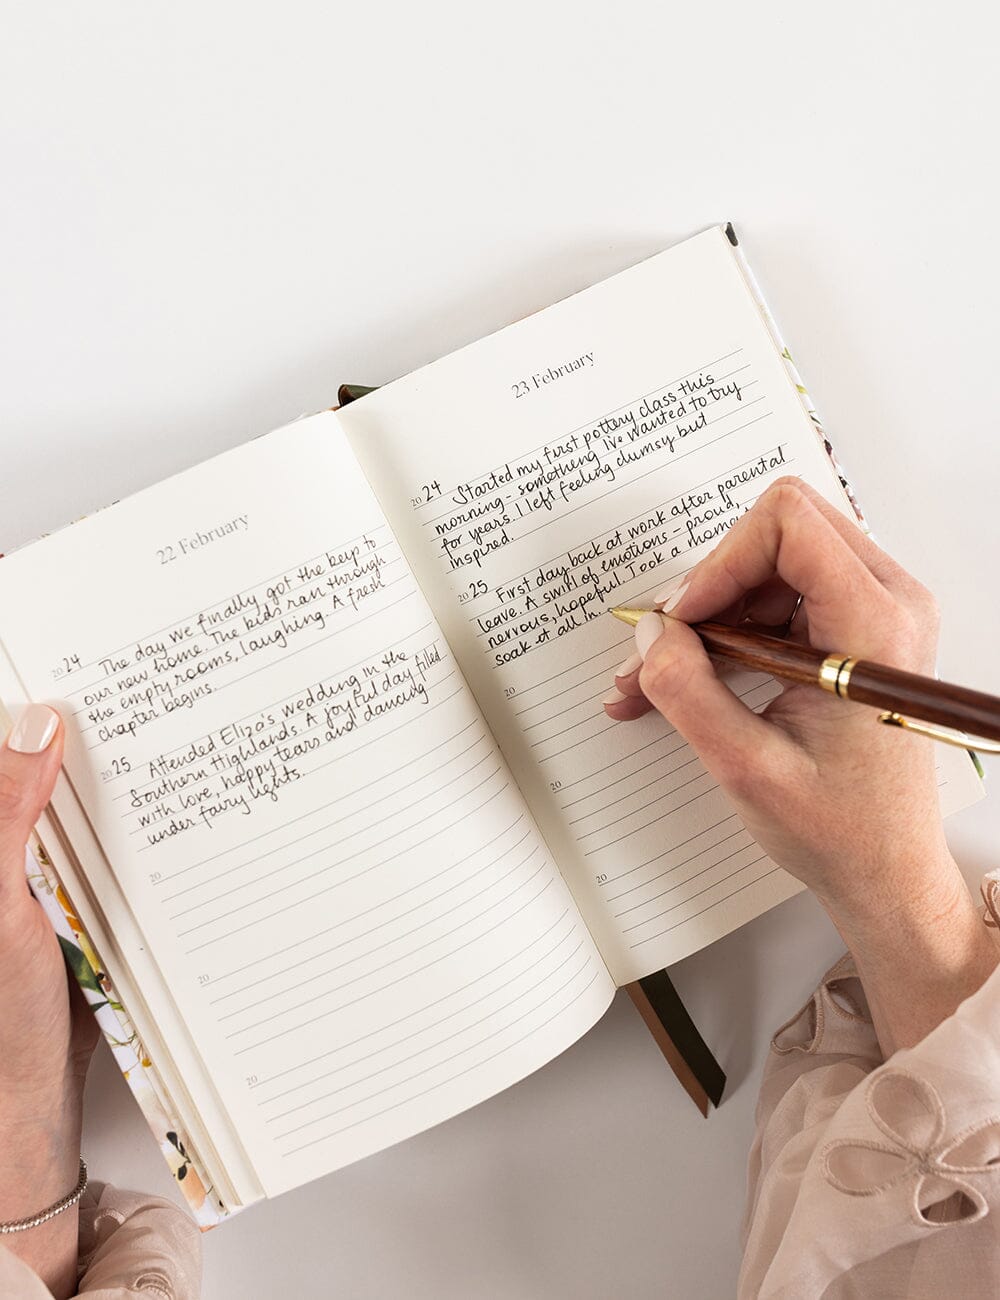 22 February
2024 The day we finally got the keys to
our new home. The kids ran through
the empty rooms, laughing. A fresh
chapter begins.
2025 Attended Eliza's wedding in the
Southern Highlands. A joyful day filled
with love, happy tears and dancing
under fairy lights.
20
20
20
23 February
2024 Started my first pottery class this
morning - something I've wanted to try
for years. I left feeling clumsy but
inspired.
2025 First day back at work after parental
leave. A swirl of emotions - proud,
nervous, hopeful. Took a
soak it all in.
20
20
20